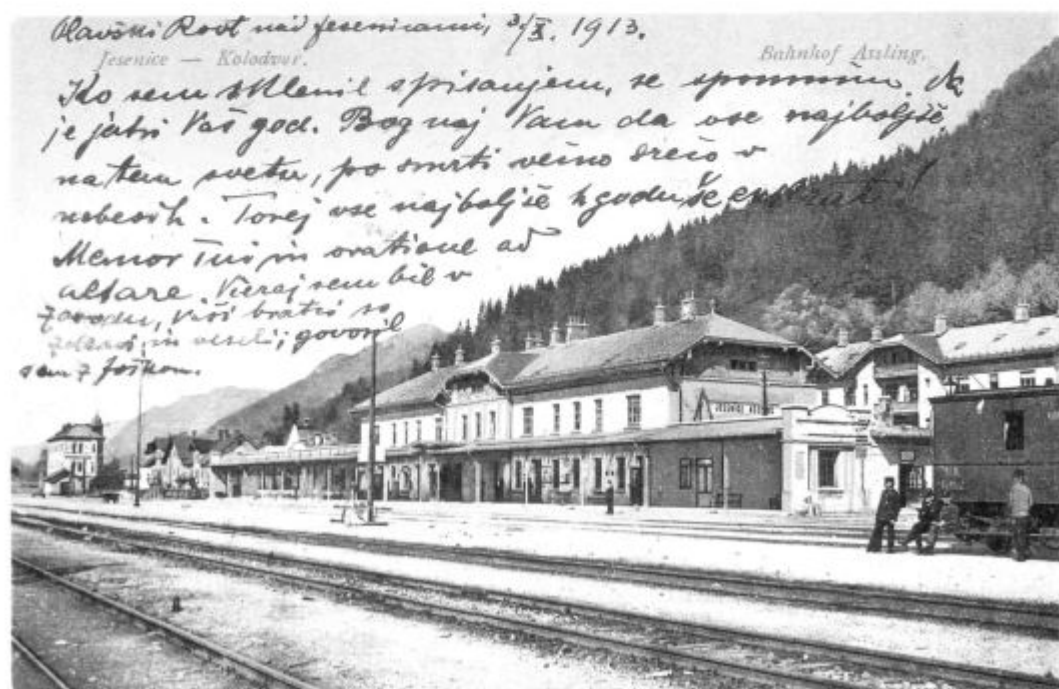 Plavški Rovt nad Jesenicami, 3/X. 1913.
Jesenice — Kolodvor. Bahnhof Assling.
Ko sem sklenil s pisanjem, se spomnim, da
je jutri Vaš god. Bog naj Vam da vse najboljše
na tem svetu, po smrti večno srečo v
nebesih. Torej vse najboljše k godu, še enkrat!
Memor Tui in oratione ad
altare. Včeraj sem bil v
zavodu, Vaši bratci so
zdravi in veseli; govoril
sem z Joškom.